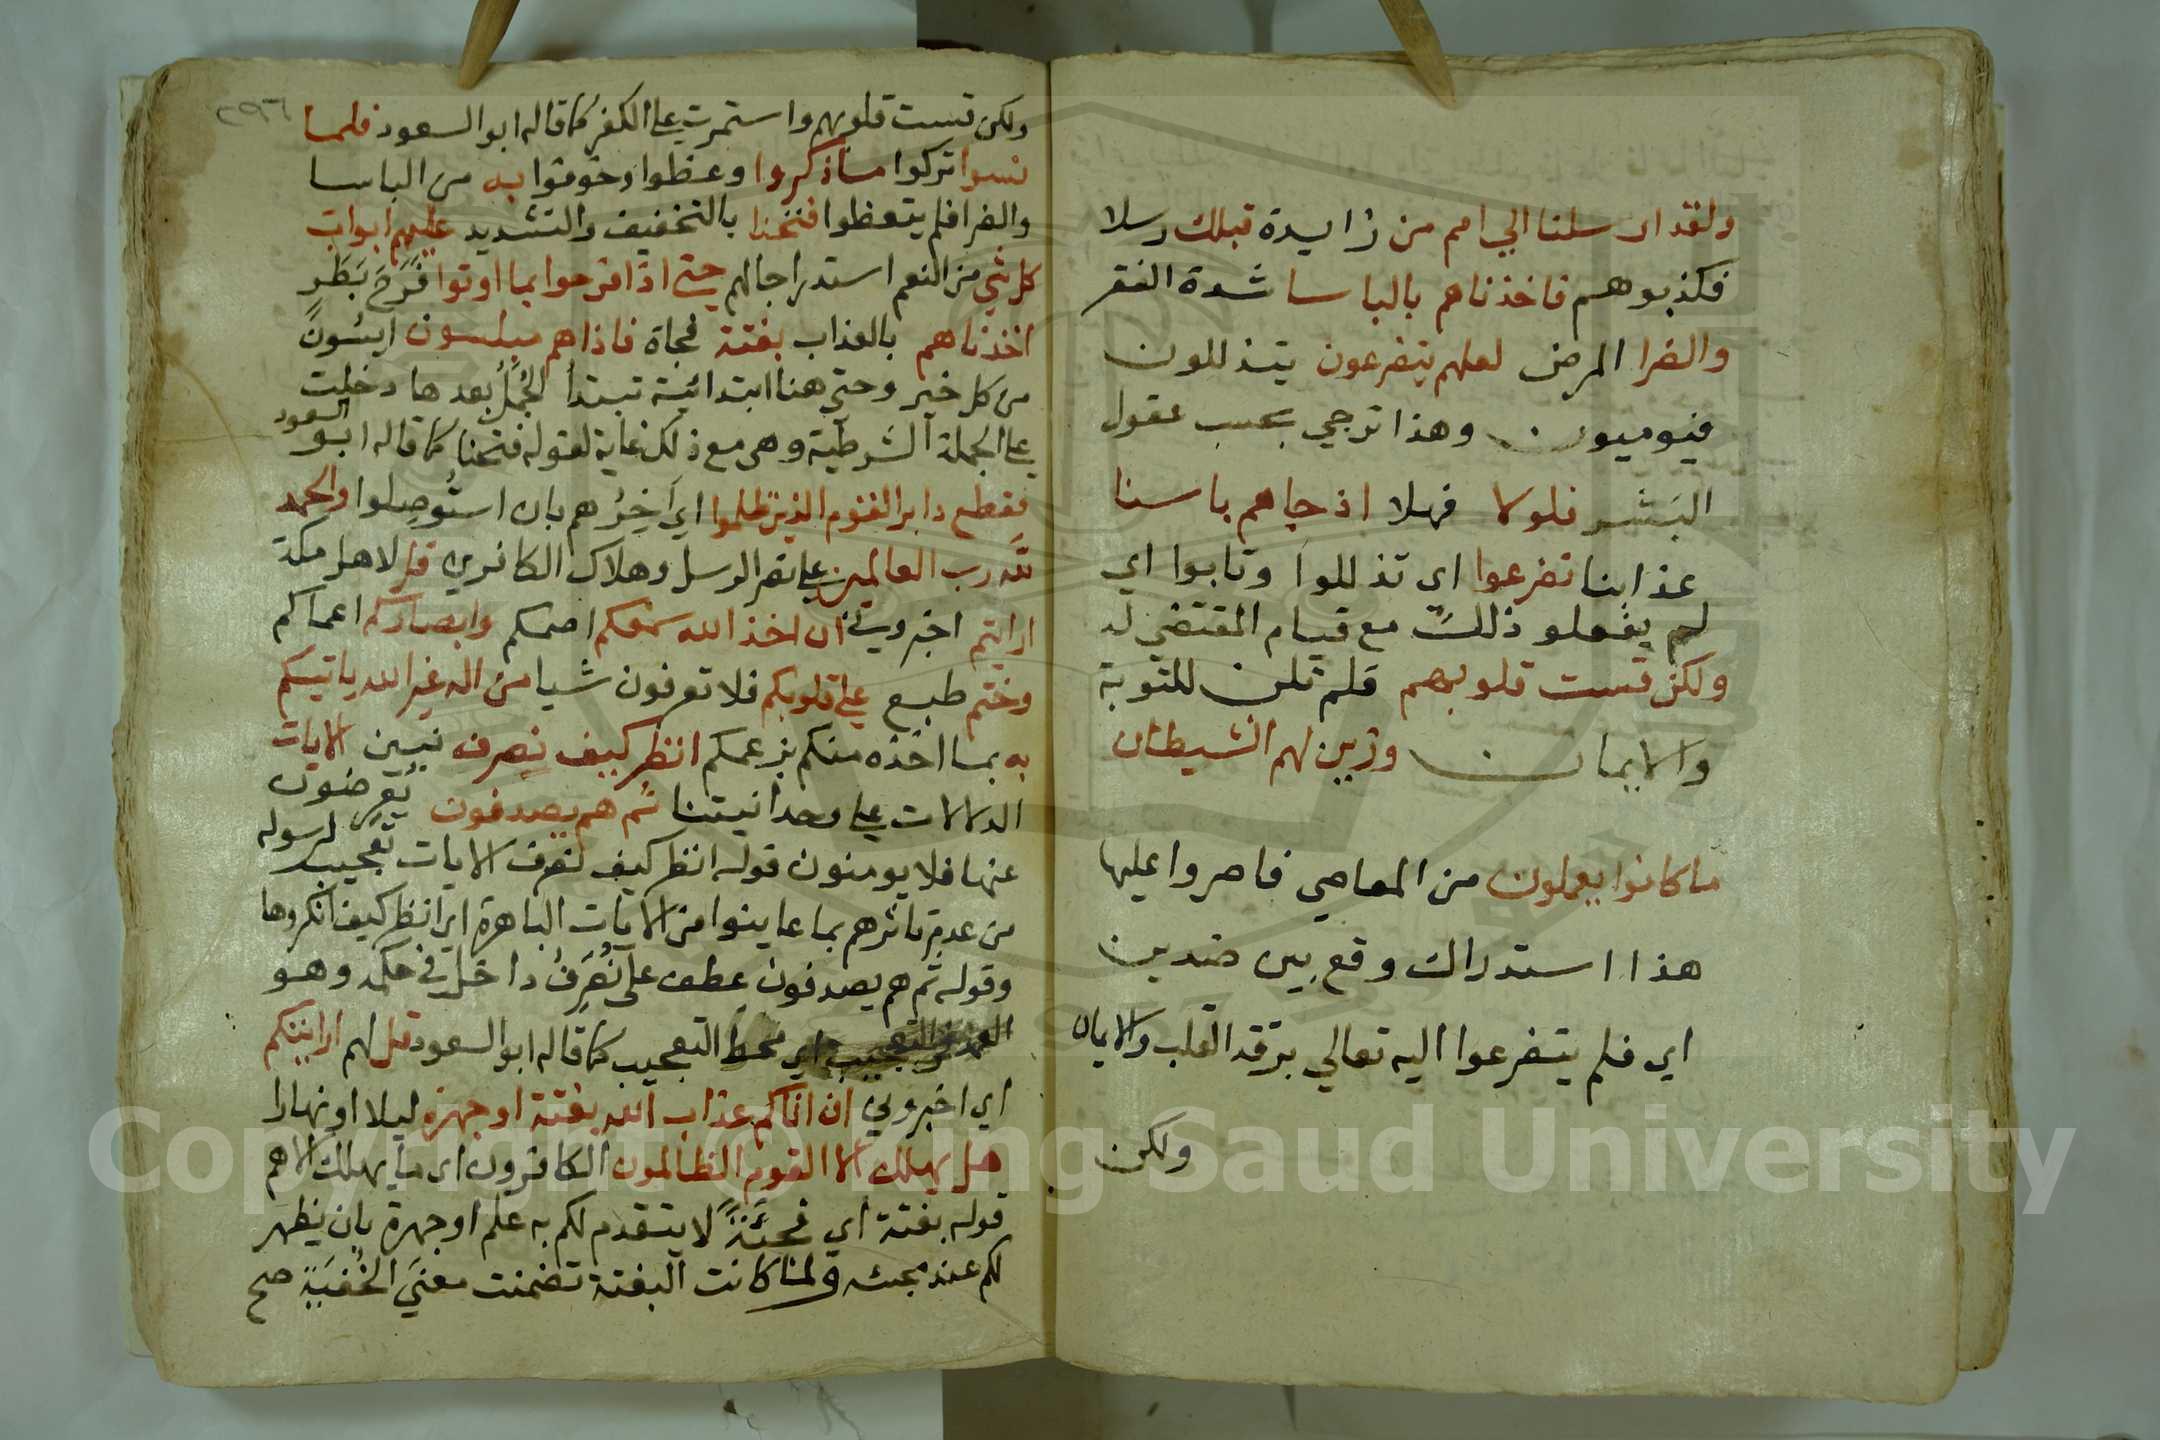 ولقد ارسلنا الي امم من زايدة قبلك رسلا
فكذبوهم فاخذناهم بالباسا شدة الفقر
والضرا المرض لعلهم يتضرعون يتذللون
فيوميون وهذا ترجي بحسب عقول
البشر فلولا فهلا اذ جاهم باسنا
عذابنا تضرعوا اي تذللوا وتابوا اي
لم يفعلو ذلك مع قيام المقتضي له
ولكن قست قلوبهم فلم تلن للتوبة
والايمان وزين لهم الشيطان
ما كانوا يعملون من المعاصي فاصروا عليها
هذا استدراك وقع بين ضدين
اي فلم يتضرعوا اليه تعالي برقة القلب والايمان
ولكن
٢٩٦
ولكن قست قلوبهم واستمرت علي الكفر كما قاله ابو السعود فلما
نسوا تركوا ما ذكروا وعظوا وخوفوا به من الباسا
والضرا فلم يتعظوا فتحنا بالتخفيف والتشديد عليهم ابواب
كل شي من النعم استدراجا لهم حتي اذا فرحوا بما اوتوا فَرَحَ بَطَرٍ
اخذناهم بالعذاب بغتة فجاة فاذا هم مبلسون ايسون
من كل خير وحتي هنا ابتدائية تبتدأ الجُمَلُ بعدها دخلت
علي الجملة الشرطية وهي مع ذلك غاية لقوله فتحنا كما قاله ابو السعود
فقطع دابر القوم الذين ظلموا اي اخِرُهم بان استُوصِلوا والحمد
لله رب العالمين علي نصر الرسل وهلاك الكافرين قل لاهل مكة
ارايتم اخبروني ان اخذ الله سمعكم اصمكم وابصاركم اعماكم
وختم طبع علي قلوبكم فلا تعرفون شيا من اله غير الله ياتيكم
به بما اخذه منكم بزعمكم انظر كيف نصرف نبين الايات
الدلالات علي وحدانيتنا ثم هم يصدفون يُعرِضون
عنها فلا يومنون قوله انظر كيف نصرف الايات تعجيب لرسوله
من عدم تاثرهم بما عاينوا من الايات الباهرة اي انظر كيف انكروها
وقوله ثم هم يصدفون عطف على نُصَرِّفُ داخل في حكمه وهو
محط التعجيب كما قاله ابو السعود قل لهم ارايتكم
اي اخبروني ان اتاكم عذاب الله بغتة او جهرة ليلا او نهارا
هل يهلك الا القوم الظالمون الكافرون اي ما يهلك الا هم
قوله بغتة اي فجئَةً لا يتقدم لكم به علم او جهرة بان يظهر
لكم عند مجئه ولما كانت البغتة تضمنت معنَي الخُفيَةِ صح
Copyright (c) King Saud University